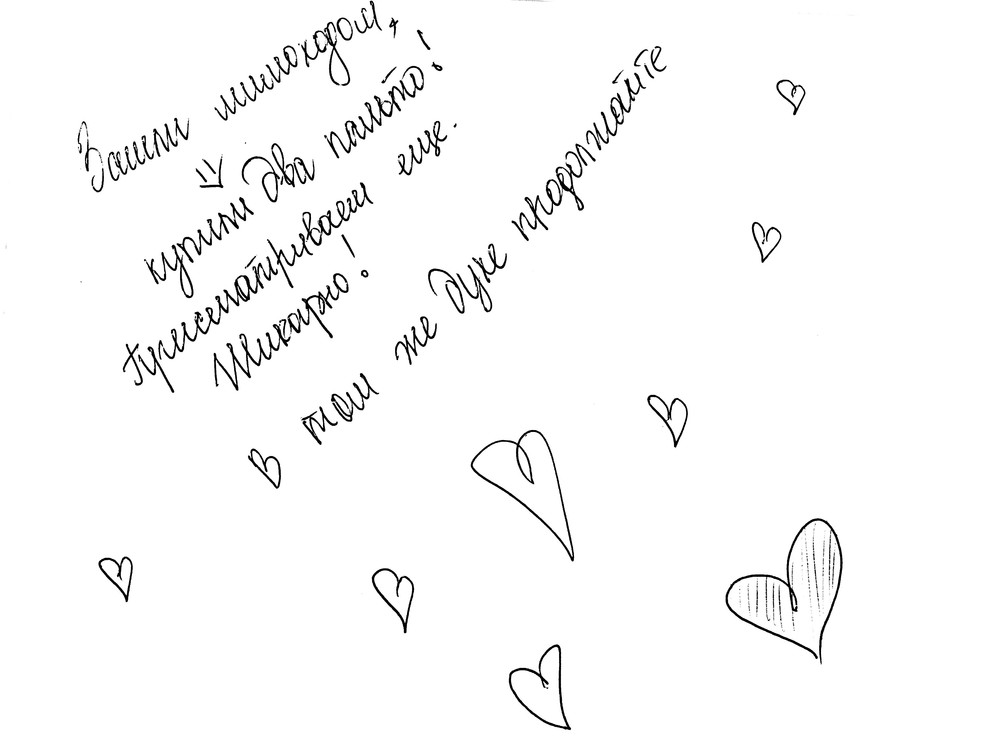 Зашли мимоходом,
купили два пальто!
Присматриваем еще.
Шикарно!
В том же духе продолжайте